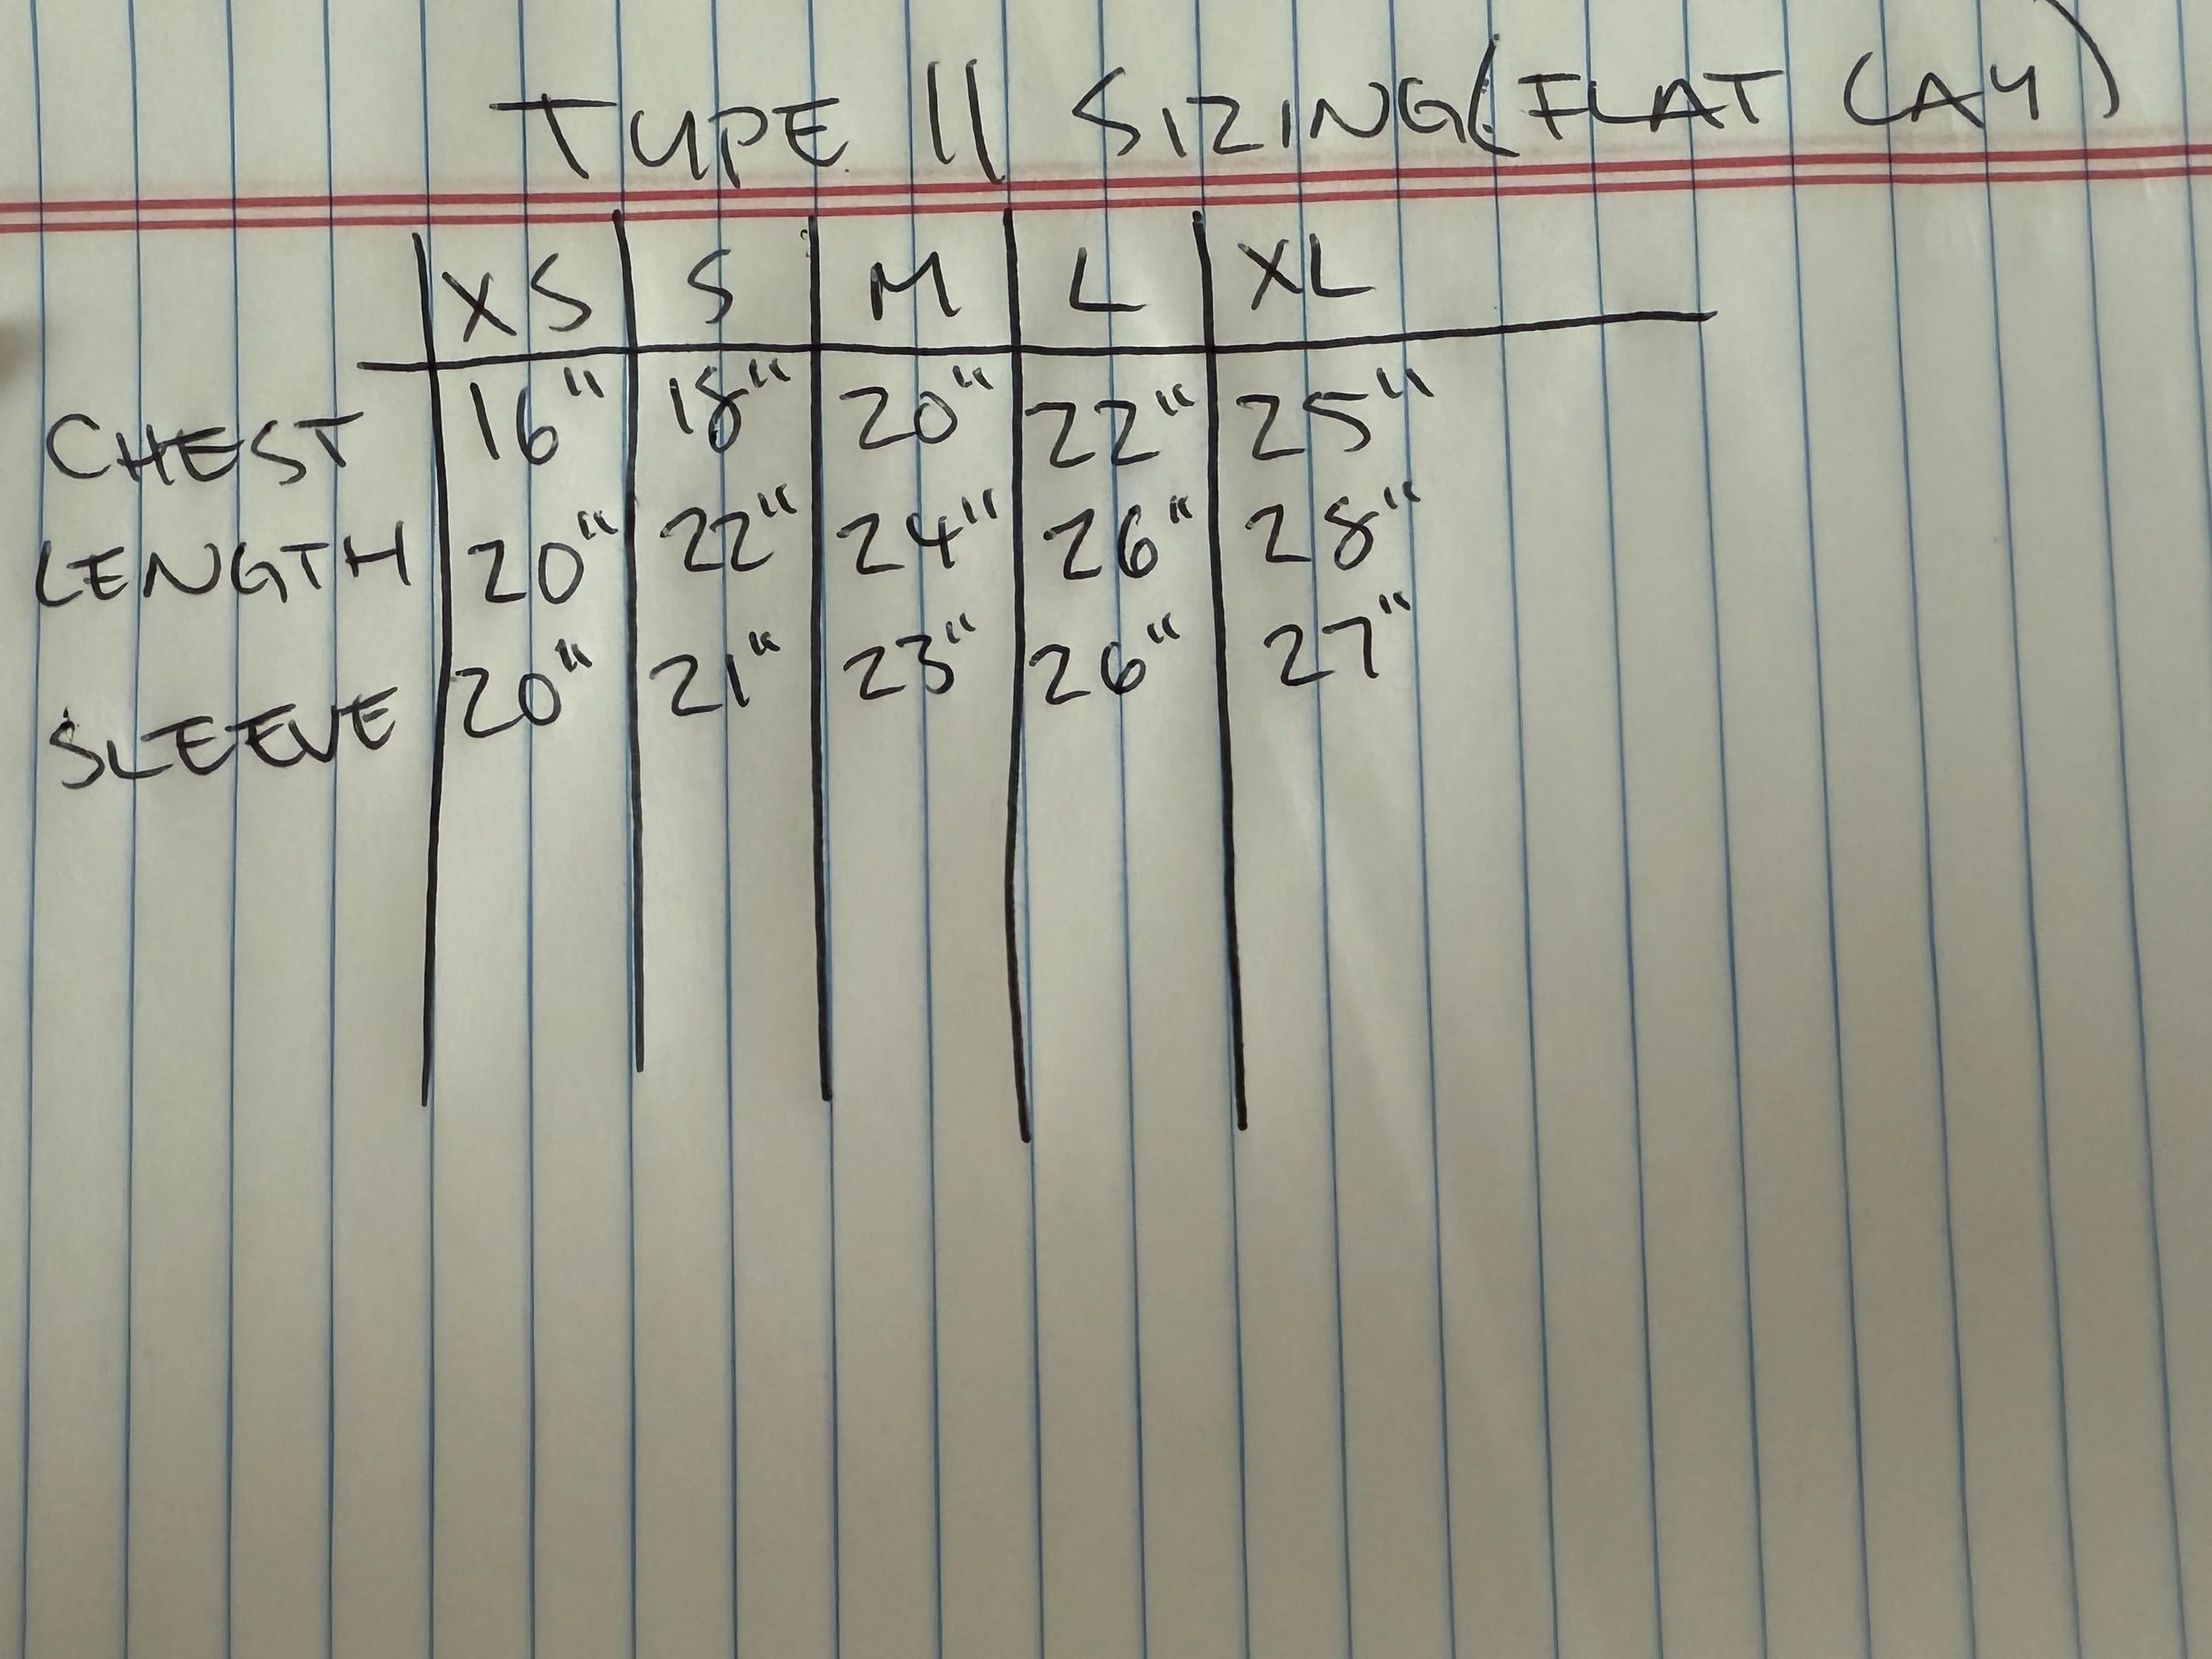 TYPE II SIZING (FLAT LAY)
XS S M L XL
CHEST 16" 18" 20" 22" 25"
LENGTH 20" 22" 24" 26" 28"
SLEEVE 20" 21" 23" 26" 27"